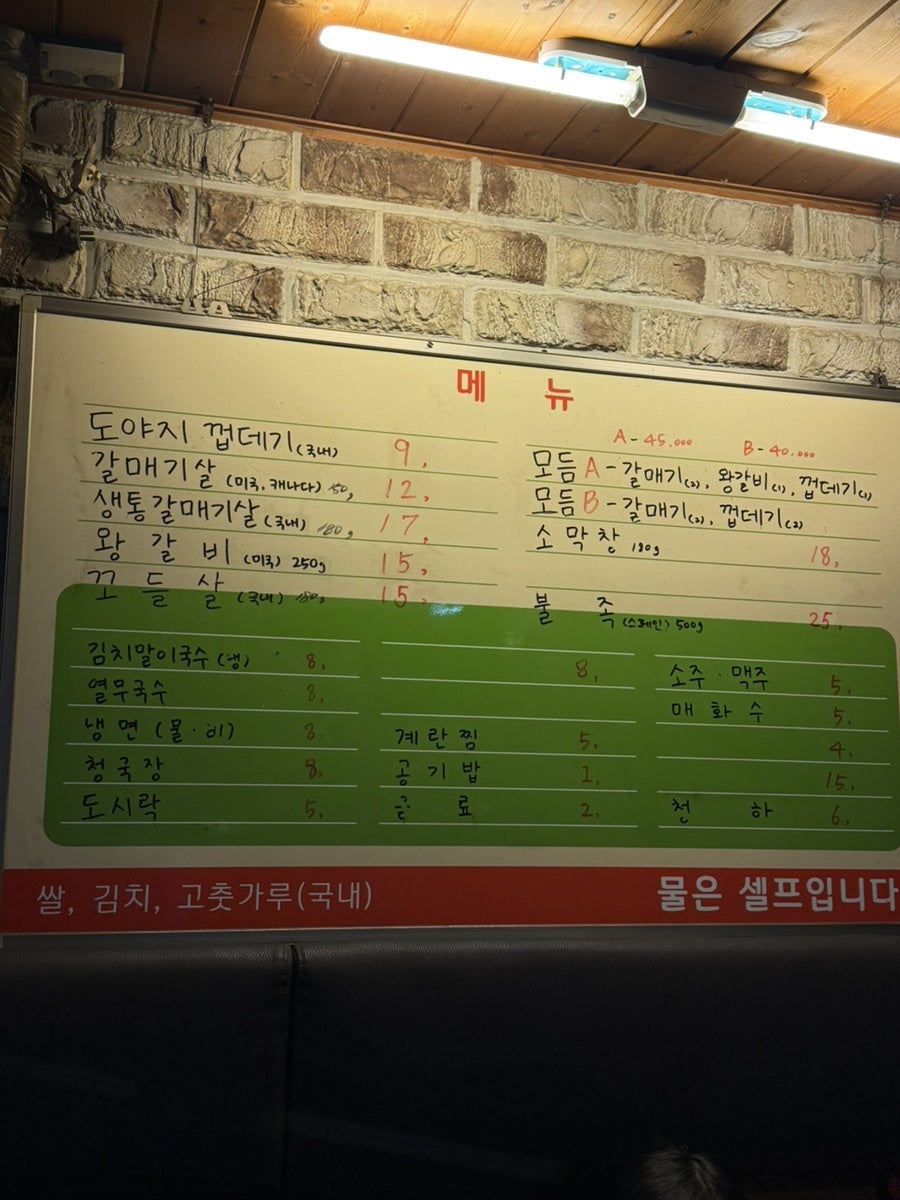 메 뉴
도야지 껍데기(국내) 9,
갈매기살 (미국, 캐나다) 12,
생통갈매기살(국내) 180g 17,
왕 갈 비 (미국) 250g 15,
꼬 들 살 (국내) 15,
A - 45.000 B - 40.000
모듬A - 갈매기(2), 왕갈비(1), 껍데기(1)
모듬B - 갈매기(2), 껍데기(2)
소 막 창 180g 18,
불 족 (스페인) 500g 25,
김치말이국수 (냉) 8,
열무국수 8,
냉 면 (물·비) 8,
청국장 8,
도시락 5,
8,
계 란 찜 5,
공 기 밥 1,
음 료 2,
소주 · 맥주 5,
매 화 수 5,
4,
15,
천 하 6,
쌀, 김치, 고춧가루(국내)
물은 셀프입니다